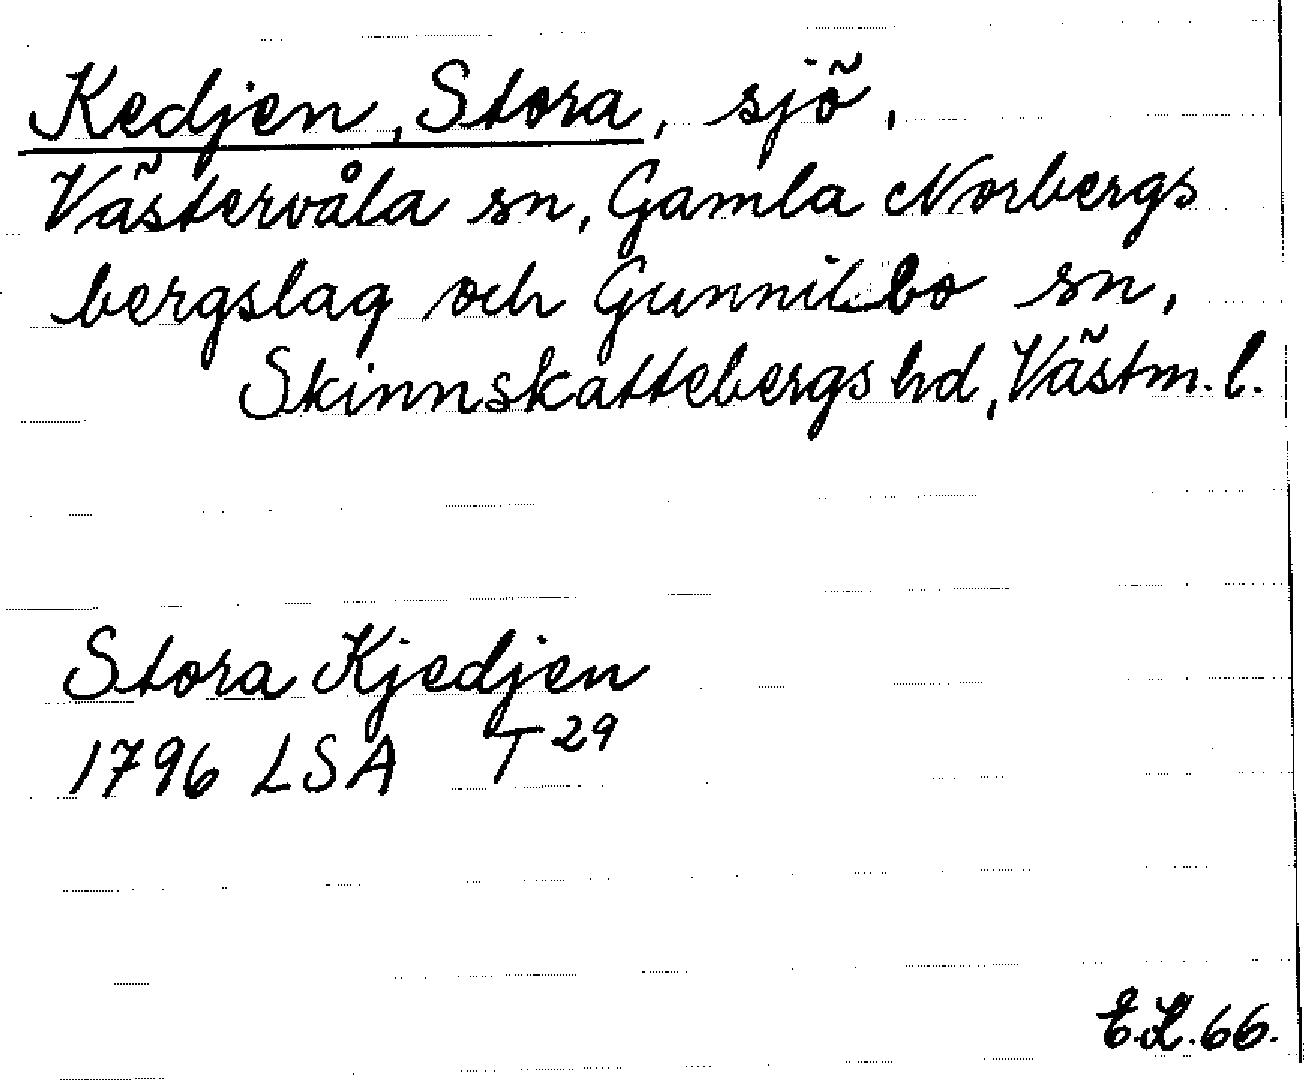 Kedjen, Stora, sjö,
Västervåla sn, Gamla Norbergs
bergslag och Gunnilbo sn,
Skinnskattebergs hd, Västm. l.
Stora Kjedjen
1796 LSA T29
E.H.66.